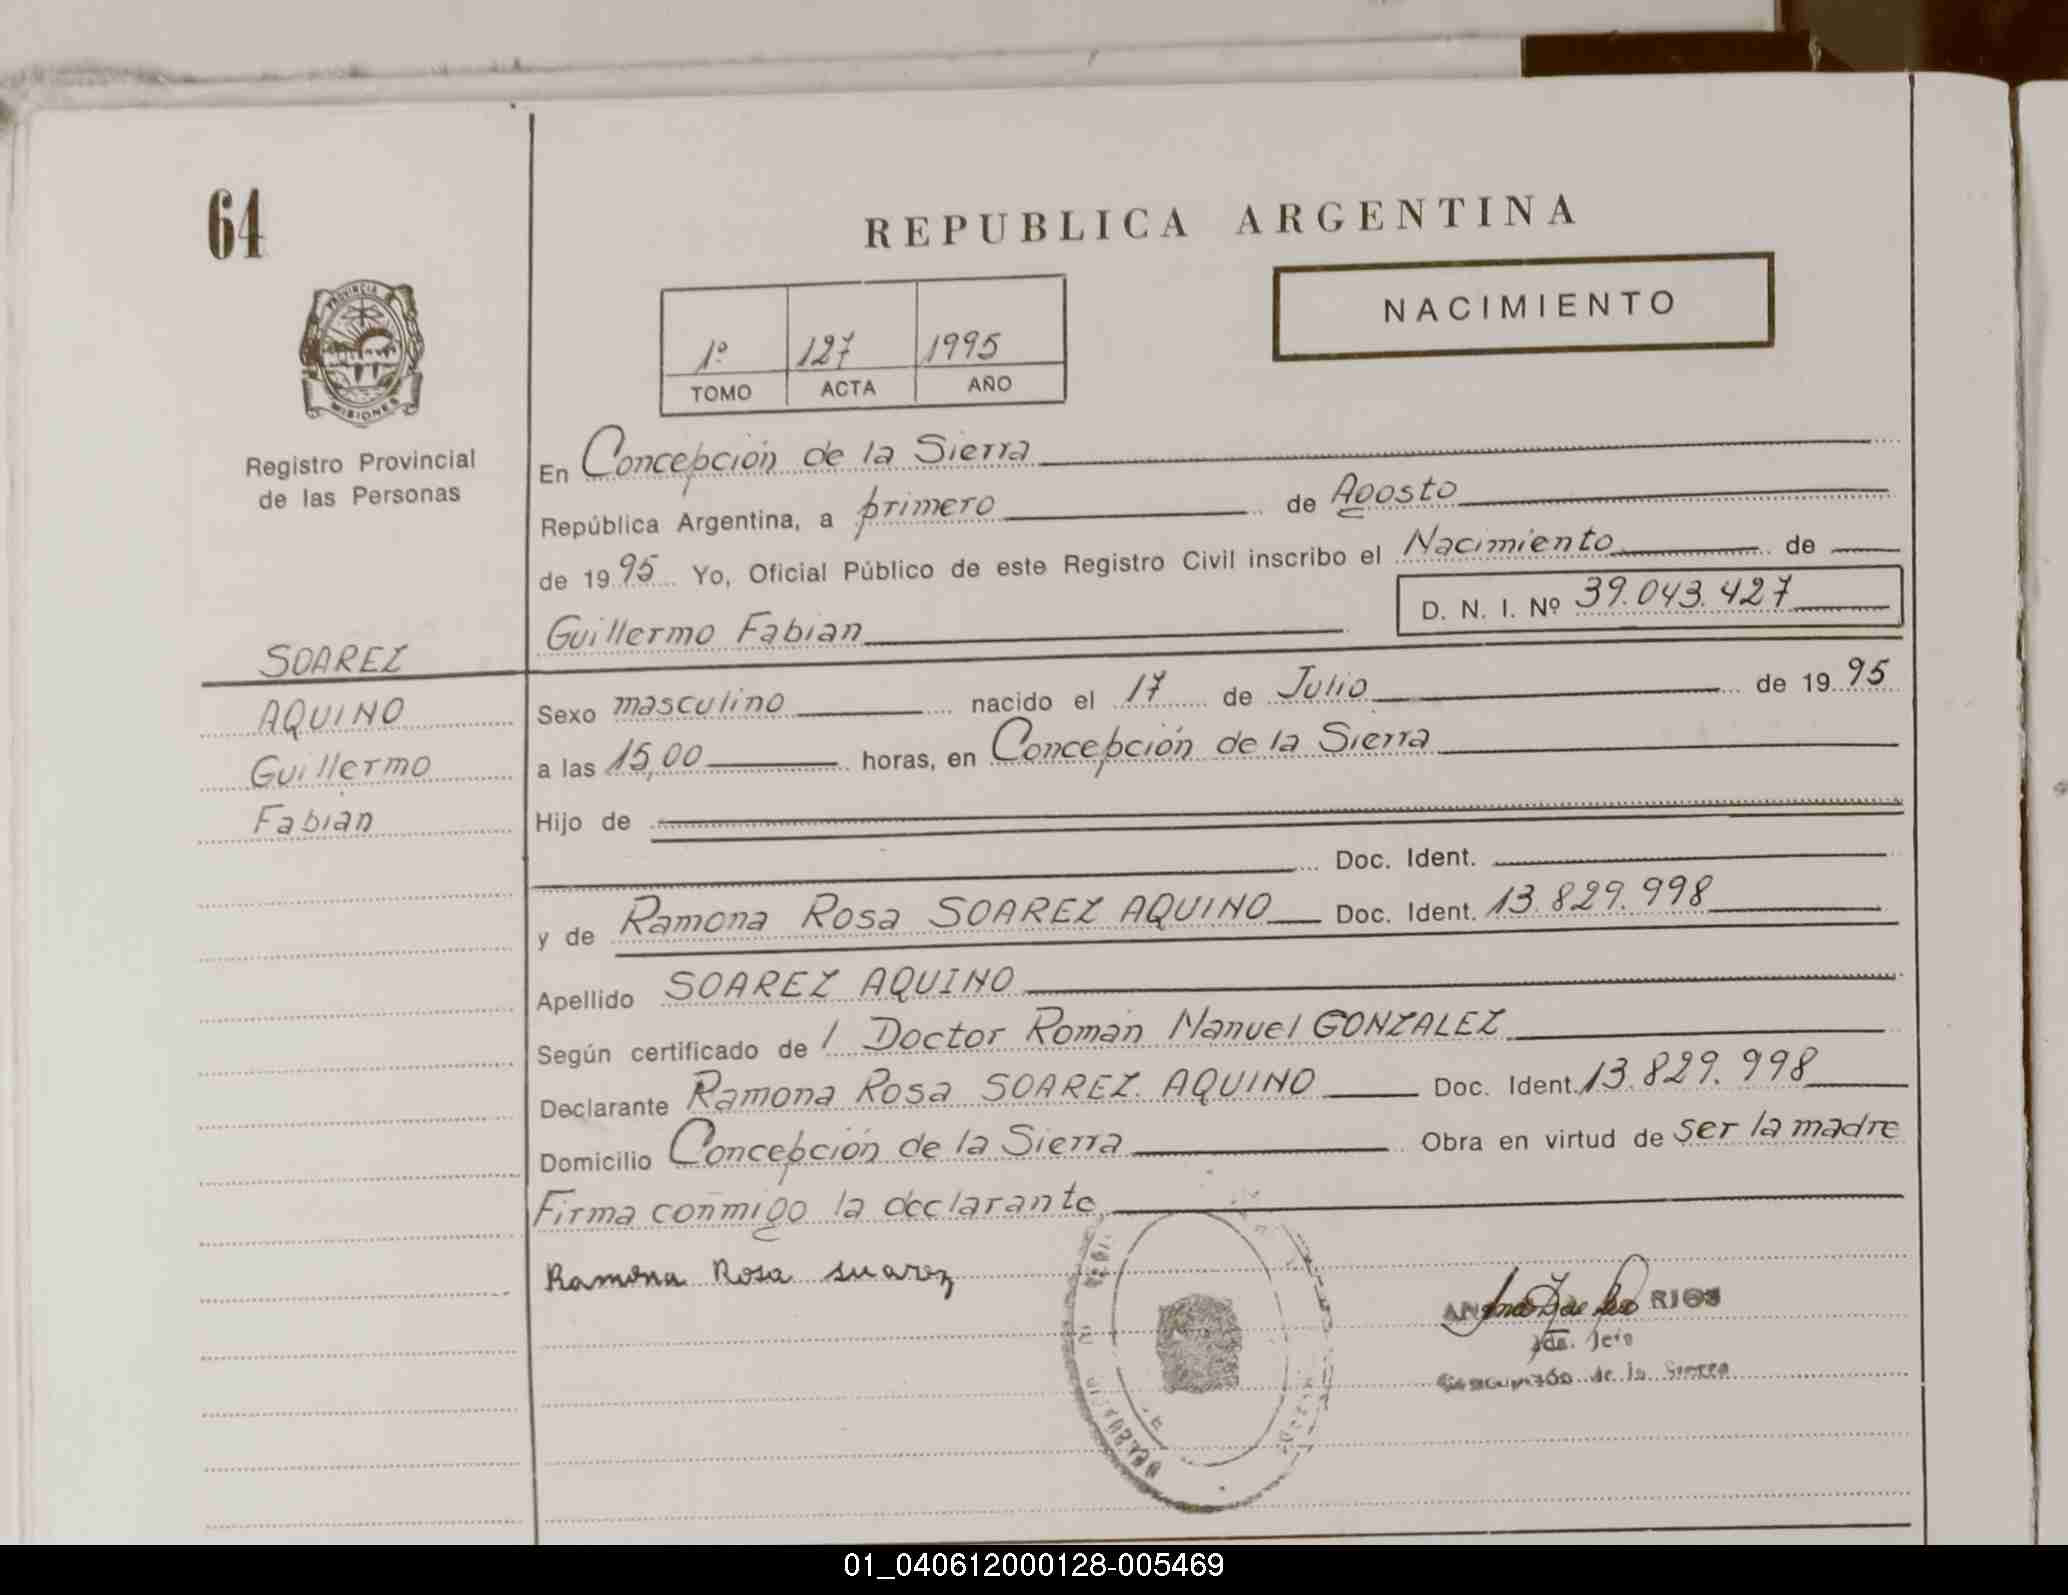 64
PROVINCIA
MISIONES
Registro Provincial
de las Personas
REPUBLICA ARGENTINA
NACIMIENTO
1º 127 1995
TOMO ACTA AÑO
En Concepción de la Sierra
República Argentina, a primero de Agosto
de 1995 Yo, Oficial Público de este Registro Civil inscribo el Nacimiento de
D. N. I. Nº 39.043.427
Guillermo Fabian
SOAREZ
AQUINO
Guillermo
Fabian
Sexo masculino nacido el 17 de Julio de 1995
a las 15,00 horas, en Concepción de la Sierra
Hijo de
Doc. Ident.
y de Ramona Rosa SOAREZ AQUINO Doc. Ident. 13.829.998
Apellido SOAREZ AQUINO
Según certificado de / Doctor Román Manuel GONZALEZ
Declarante Ramona Rosa SOAREZ AQUINO Doc. Ident. 13.829.998
Domicilio Concepción de la Sierra Obra en virtud de ser la madre
Firma conmigo la declarante
Ramona Rosa suarez
RIOS
de la Sierra
01_040612000128-005469